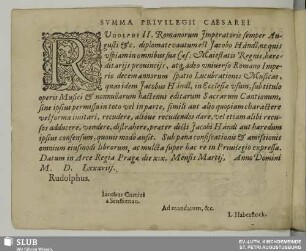 SVMMA PRIVILEGII CAESAREI
RVDOLPHI II. Romanorum Imperatoris semper Augusti
&c. diplomate cautum est Jacobo Händl, ne quis
vspiam in omnibus suæ Cæs. Maiestatis Regnis, hereditarijs
prouincijs, atq; adeò vniuerso Romano Imperio
decem annorum spatio Lucubrationes Musicas,
quas idem Jacobus Händl, in Ecclesiæ vsum, sub titulo
operis Musici & nonnullarum hactenus editarum Sacrarum Cantionum,
sine ipsius permissu in toto vel in parte, simili aut alio quopiam charactere
vel forma imitari, recudere, aliove recudendos dare, vel etiam alibi recusos
adducere, vendere, distrahere, præter dicti Jacobi Händl aut hæredum
ipsius consensum, quouis modo ausit. Sub pœna confiscationis & amissionis
omnium eiusmodi librorum, ac mulcta super hac re in Priuilegio expressa.
Datum in Arce Regia Pragæ die xix. Mensis Martij, Anno Domini
M. D. LXXXviij.
Rudolphus.
Iacobus Curtius
à Senftenau.
Ad mandatum, &c.
I. Haberstock.
SLUB
Wir führen Wissen.
EV.-LUTH. KIRCHGEMEINDE
ST. PETRI AUGUSTUSBURG